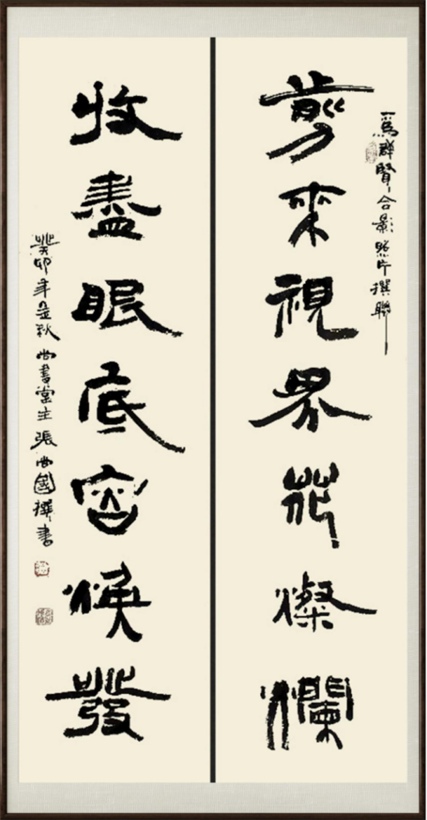 爲群賢合影照片撰聯
剪來視界花燦爛
收盡眼底容煥發
癸卯年金秋尚書堂主張尚國撰書